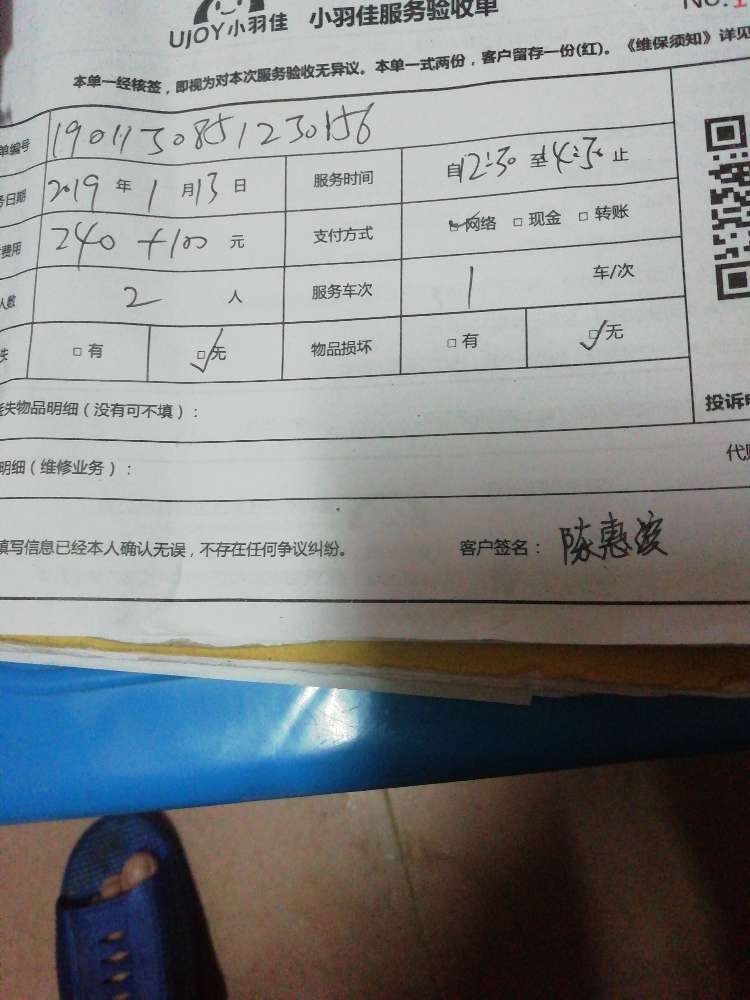 UJOY小羽佳 小羽佳服务验收单
NO.1
本单一经核签，即视为对本次服务验收无异议。本单一式两份，客户留存一份(红)。《维保须知》详见
单编号 1901130851230156
务日期 2019 年 1 月 13 日 服务时间 自12:30 至14:30 止
费用 240+100 元 支付方式 ☑网络 □现金 □转账
人数 2 人 服务车次 1 车/次
失 □有 ☑无 物品损坏 □有 ☑无
失物品明细（没有可不填）：
投诉电
明细（维修业务）：
代
填写信息已经本人确认无误，不存在任何争议纠纷。 客户签名： 陈惠